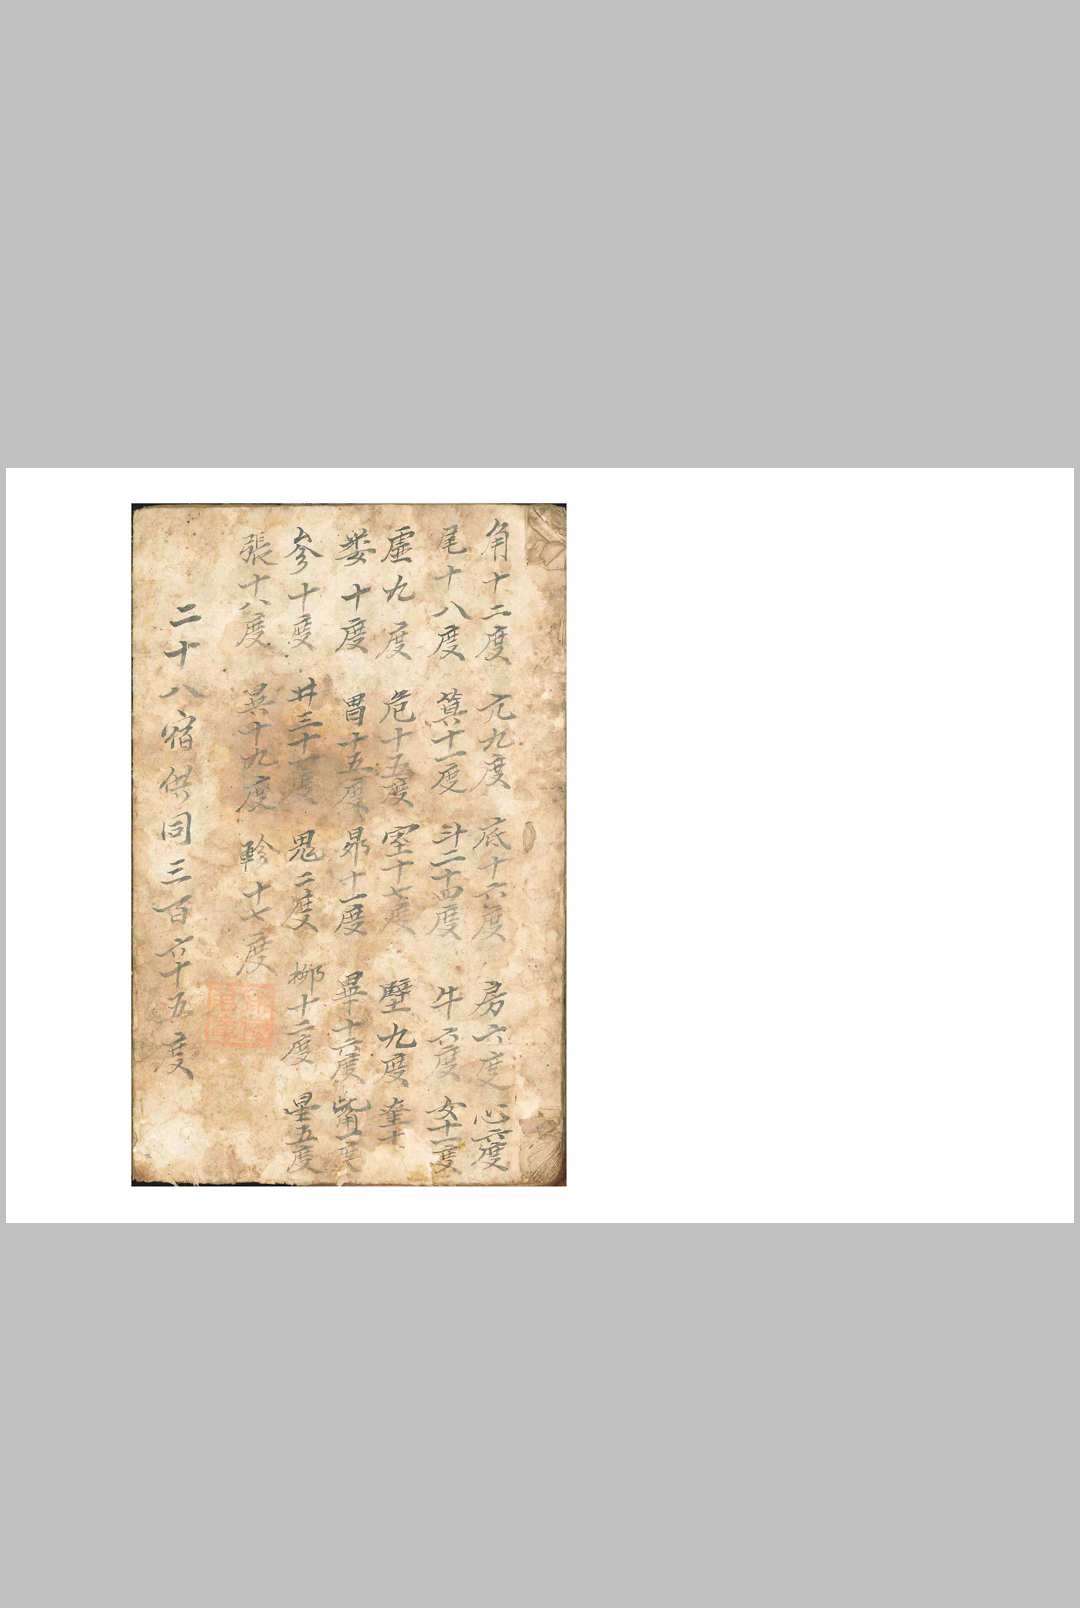 角十二度 亢九度 底十六度 房六度 心六度
尾十八度 箕十一度 斗二十四度 牛六度 女十一度
虛九度 危十五度 室十七度 壁九度 奎十
婁十度 胃十五度 昴十一度 畢十六度 觜一度
參十度 井三十一度 鬼二度 柳十二度 星五度
張十八度 異十九度 軫十七度
二十八宿供同三百六十五度